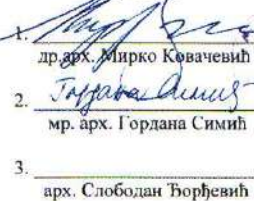 1.
др.арх. Мирко Ковачевић
2. Гордана Симић
мр. арх. Гордана Симић
3.
арх. Слободан Ђорђевић